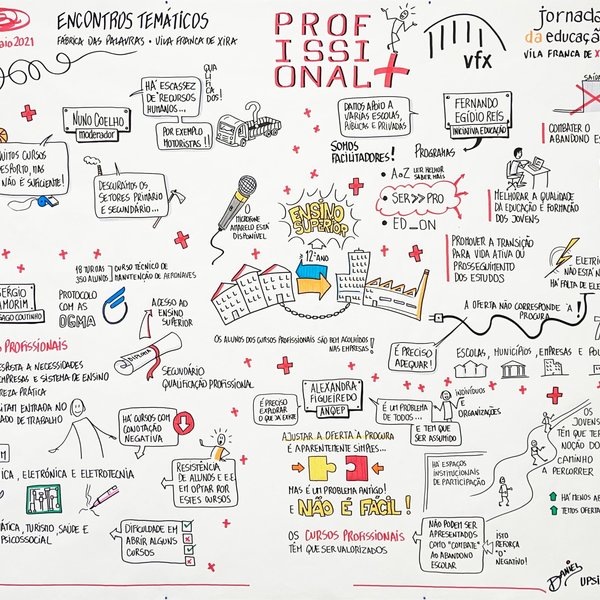 aio 2021
ENCONTROS TEMÁTICOS
FÁBRICA DAS PALAVRAS • VIVA FRANCA DE XIRA
PROF
ISSI
ONAL+
vfx
jornada
da educação
VILA FRANCA DE X
HÁ ESCASSEZ
DE RECURSOS
HUMANOS...
QUA
LIFI
CA
DOS!
POR EXEMPLO
MOTORISTAS!!
NUNO COELHO
moderador
UITOS CURSOS
ESPORTO, MAS
NÃO É SUFICIENTE!
DESCURAMOS OS
SETORES PRIMÁRIO
E SECUNDÁRIO...
MICROFONE
AMARELO ESTÁ
DISPONÍVEL
DAMOS APOIO A
VÁRIAS ESCOLAS,
PÚBLICAS E PRIVADAS
SOMOS
FACILITADORES!
FERNANDO
EGÍDIO REIS
INICIATIVA EDUCAÇÃO
PROGRAMAS
• A→Z LER MELHOR
SABER MAIS
• SER>>PRO
• ED_ON
SAÍDA
COMBATER O
ABANDONO ES
MELHORAR A QUALIDADE
DA EDUCAÇÃO E FORMAÇÃO
DOS JOVENS
PROMOVER A TRANSIÇÃO
PARA VIDA ATIVA OU
PROSSEGUIMENTO
DOS ESTUDOS
ELETRI
NÃO ESTÁ N
HÁ FALTA DE ELE
ENSINO
SUPERIOR
12º ANO
SÉRGIO
AMORIM
GAGO COUTINHO
18 TURMAS
350 ALUNOS
CURSO TÉCNICO DE
MANUTENÇÃO DE AERONAVES
PROTOCOLO
COM AS
OGMA
ACESSO AO
ENSINO
SUPERIOR
DIPLOMA
SECUNDÁRIO
QUALIFICAÇÃO PROFISSIONAL
A OFERTA NÃO CORRESPONDE À
PROCURA!
OS ALUNOS DOS CURSOS PROFISSIONAIS SÃO BEM ACOLHIDOS
NAS EMPRESAS!
É PRECISO
ADEQUAR!
ESCOLAS, MUNICÍPIOS, EMPRESAS E POL
S PROFISSIONAIS
POSTA A NECESSIDADES
MPRESAS E SISTEMA DE ENSINO
REZA PRÁTICA
ITAM ENTRADA NO
ADO DE TRABALHO
HÁ CURSOS COM
CONOTAÇÃO
NEGATIVA
RESISTÊNCIA
DE ALUNOS E EE
EM OPTAR POR
ESTES CURSOS
ICA, ELETRÓNICA E ELETROTECNIA
ÁTICA, TURISMO, SAÚDE E
PSICOSSOCIAL
DIFICULDADE EM
ABRIR ALGUNS
CURSOS
É PRECISO
EXPLORAR
O QUE JÁ EXISTE
ALEXANDRA
FIGUEIREDO
ANQEP
É UM PROBLEMA
DE TODOS...
INDIVÍDUOS
E
ORGANIZAÇÕES
E TEM QUE
SER ASSUMIDO
AJUSTAR A OFERTA À PROCURA
É APARENTEMENTE SIMPLES...
MAS É UM PROBLEMA ANTIGO!
E NÃO É FÁCIL!
OS CURSOS PROFISSIONAIS
TÊM QUE SER VALORIZADOS
HÁ ESPAÇOS
INSTITUCIONAIS
DE PARTICIPAÇÃO
NÃO PODEM SER
APRESENTADOS
COMO "COMBATE"
AO ABANDONO
ESCOLAR
ISTO
REFORÇA
"O"
NEGATIVO!
OS
JOVENS
TÊM QUE TER
NOÇÃO DO
CAMINHO
A PERCORRER
HÁ MENOS AB
TEMOS OFERTA
DANIEL
UPSI